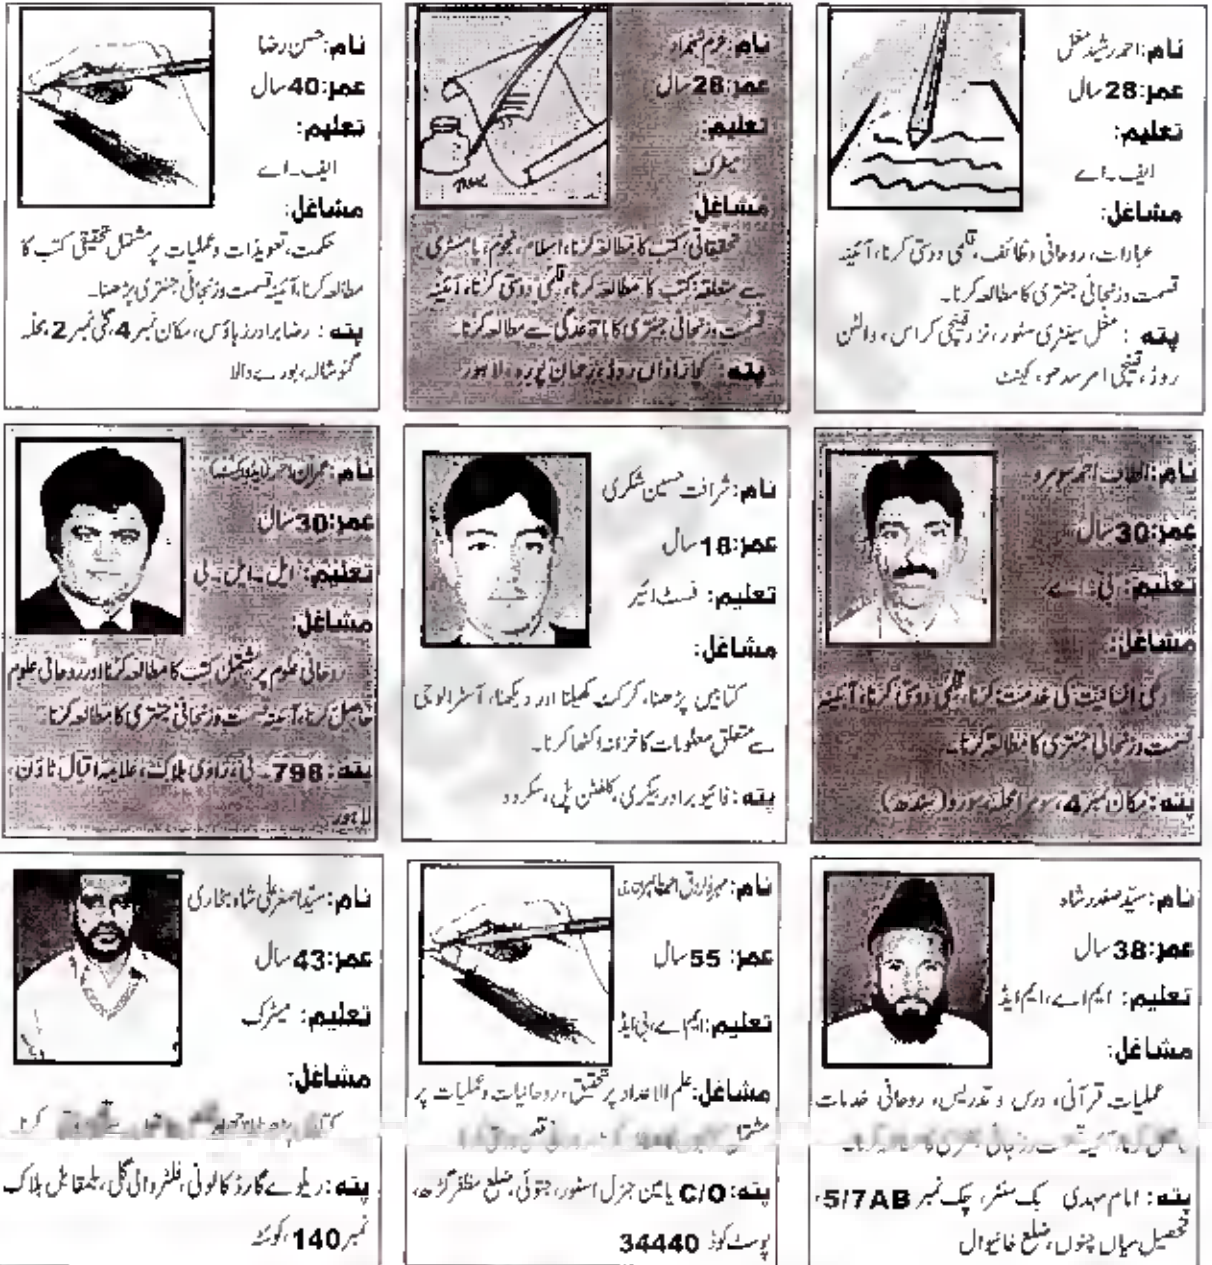 نام: احمد رشید مغل
عمر: 28 سال
تعلیم:
ایف۔اے
مشاغل:
عبادات، روحانی وظائف، قلمی دوستی کرنا، آئینہ
قسمت وزنجانی جنتری کا مطالعہ کرنا۔
پتہ: مغل سینٹری سٹور، نزد قینچی کراس، والٹن
روڈ، قینچی امرسدھو، کینٹ
نام: خرم شہزاد
عمر: 28 سال
تعلیم:
میٹرک
مشاغل:
تحقیقاتی کتب کا مطالعہ کرنا، اسلام، نجوم، پامسٹری
سے متعلقہ کتب کا مطالعہ کرنا، قلمی دوستی کرنا، آئینہ
قسمت وزنجانی جنتری کا باقاعدگی سے مطالعہ کرنا۔
پتہ: روڈ، رحمان پورہ، لاہور
نام: حسن رضا
عمر: 40 سال
تعلیم:
ایف۔اے
مشاغل:
حکمت، تعویذات وعملیات پر مشتمل تحقیقی کتب کا
مطالعہ کرنا، آئینہ قسمت وزنجانی جنتری پڑھنا۔
پتہ: رضا برادرز ہاؤس، مکان نمبر 4، گلی نمبر 2، محلہ
گئوشالہ، بورے والا
نام: الطاف احمد سومرو
عمر: 30 سال
تعلیم: بی۔اے
مشاغل:
دکھی انسانیت کی خدمت کرنا، قلمی دوستی کرنا، آئینہ
قسمت وزنجانی جنتری کا مطالعہ کرنا۔
پتہ: مکان نمبر 4، سومرا محلہ، مورو (سندھ)
نام: شرافت حسین شگری
عمر: 18 سال
تعلیم: فسٹ ائیر
مشاغل:
کتابیں پڑھنا، کرکٹ کھیلنا اور دیکھنا، آسٹرالوجی
سے متعلق معلومات کا خزانہ اکٹھا کرنا۔
پتہ: فائیو برادر بیکری، کلفٹن پل، سکردو
نام: عمران احمد (ایڈووکیٹ)
عمر: 30 سال
تعلیم: ایل۔ایل۔بی
مشاغل:
روحانی علوم پر مشتمل کتب کا مطالعہ کرنا اور روحانی علوم
حاصل کرنا، آئینہ قسمت وزنجانی جنتری کا مطالعہ کرنا۔
پتہ: 798۔ بی، راوی بلاک، علامہ اقبال ٹاؤن،
لاہور
نام: سید صفدر شاہ
عمر: 38 سال
تعلیم: ایم اے، ایم ایڈ
مشاغل:
عملیات قرآنی، درس و تدریس، روحانی خدمات
پتہ: امام مہدی بک سنٹر، چک نمبر 5/7AB،
تحصیل میاں چنوں، ضلع خانیوال
نام: مہر فاروق احمد
عمر: 55 سال
تعلیم: ایم اے، بی ایڈ
مشاغل: علم الاعداد پر تحقیق، روحانیات وعملیات پر
مشتمل
پتہ: C/O یامین جنرل اسٹور، جتوئی، ضلع مظفر گڑھ،
پوسٹ کوڈ 34440
نام: سید اصغر علی شاہ بخاری
عمر: 43 سال
تعلیم: میٹرک
مشاغل:
کرنا۔
پتہ: ریلوے گارڈ کالونی، فلٹر والی گلی، بلمقابل بلاک
نمبر 140، کوئٹہ